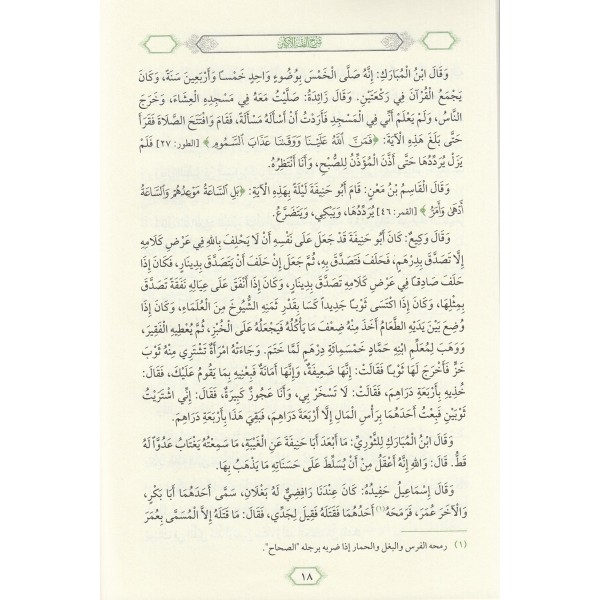 شرح الفقه الأكبر
وَقَالَ ابْنُ الْمُبَارَكِ: إِنَّهُ صَلَّى الْخَمْسَ بِوُضُوءٍ وَاحِدٍ خَمْساً وَأَرْبَعِينَ سَنَةً، وَكَانَ
يَجْمَعُ الْقُرْآنَ فِي رَكْعَتَيْنِ. وَقَالَ زَائِدَةُ: صَلَّيْتُ مَعَهُ فِي مَسْجِدِهِ الْعِشَاءَ، وَخَرَجَ
النَّاسُ، وَلَمْ يَعْلَمْ أَنِّي فِي الْمَسْجِدِ فَأَرَدْتُ أَنْ أَسْأَلَهُ مَسْأَلَةً، فَقَامَ وَافْتَتَحَ الصَّلَاةَ فَقَرَأَ
حَتَّى بَلَغَ هَذِهِ الْآيَةَ: ﴿فَمَنَّ اللَّهُ عَلَيْنَا وَوَقَانَا عَذَابَ السَّمُومِ﴾ [الطور: ٢٧] فَلَمْ
يَزَلْ يُرَدِّدُهَا حَتَّى أَذَّنَ الْمُؤَذِّنُ لِلصُّبْحِ، وَأَنَا أَنْتَظِرُهُ.
وَقَالَ الْقَاسِمُ بْنُ مَعْنٍ: قَامَ أَبُو حَنِيفَةَ لَيْلَةً بِهَذِهِ الْآيَةِ: ﴿بَلِ السَّاعَةُ مَوْعِدُهُمْ وَالسَّاعَةُ
أَدْهَى وَأَمَرُّ﴾ [القمر: ٤٦] يُرَدِّدُهَا، وَيَبْكِي، وَيَتَضَرَّعُ.
وَقَالَ وَكِيعٌ: كَانَ أَبُو حَنِيفَةَ قَدْ جَعَلَ عَلَى نَفْسِهِ أَنْ لَا يَحْلِفَ بِاللهِ فِي عَرْضِ كَلَامِهِ
إِلَّا تَصَدَّقَ بِدِرْهَمٍ، فَحَلَفَ فَتَصَدَّقَ بِهِ، ثُمَّ جَعَلَ إِنْ حَلَفَ أَنْ يَتَصَدَّقَ بِدِينَارٍ، فَكَانَ إِذَا
حَلَفَ صَادِقاً فِي عَرْضِ كَلَامِهِ تَصَدَّقَ بِدِينَارٍ، وَكَانَ إِذَا أَنْفَقَ عَلَى عِيَالِهِ نَفَقَةً تَصَدَّقَ
بِمِثْلِهَا، وَكَانَ إِذَا اكْتَسَى ثَوْباً جَدِيداً كَسَا بِقَدْرِ ثَمَنِهِ الشُّيُوخَ مِنَ الْعُلَمَاءِ، وَكَانَ إِذَا
وُضِعَ بَيْنَ يَدَيْهِ الطَّعَامُ أَخَذَ مِنْهُ ضِعْفَ مَا يَأْكُلُهُ فَيَجْعَلُهُ عَلَى الْخُبْزِ، ثُمَّ يُعْطِيهِ الْفَقِيرَ،
وَوَهَبَ لِمُعَلِّمِ ابْنِهِ حَمَّادٍ خَمْسَمِائَةِ دِرْهَمٍ لَمَّا خَتَمَ. وَجَاءَتْهُ امْرَأَةٌ تَشْتَرِي مِنْهُ ثَوْبَ
خَزٍّ فَأَخْرَجَ لَهَا ثَوْباً فَقَالَتْ: إِنَّهَا ضَعِيفَةٌ، وَإِنَّهَا أَمَانَةٌ فَبِعْنِيهِ بِمَا يَقُومُ عَلَيْكَ، فَقَالَ:
خُذِيهِ بِأَرْبَعَةِ دَرَاهِمَ، فَقَالَتْ: لَا تَسْخَرْ بِي، وَأَنَا عَجُوزٌ كَبِيرَةٌ، فَقَالَ: إِنِّي اشْتَرَيْتُ
ثَوْبَيْنِ فَبِعْتُ أَحَدَهُمَا بِرَأْسِ الْمَالِ إِلَّا أَرْبَعَةَ دَرَاهِمَ، فَبَقِيَ هَذَا بِأَرْبَعَةِ دَرَاهِمَ.
وَقَالَ ابْنُ الْمُبَارَكِ لِلثَّوْرِيِّ: مَا أَبْعَدَ أَبَا حَنِيفَةَ عَنِ الْغَيْبَةِ، مَا سَمِعْتُهُ يَغْتَابُ عَدُوًّا لَهُ
قَطُّ. قَالَ: وَاللهِ إِنَّهُ أَعْقَلُ مِنْ أَنْ يُسَلِّطَ عَلَى حَسَنَاتِهِ مَا يَذْهَبُ بِهَا.
وَقَالَ إِسْمَاعِيلُ حَفِيدُهُ: كَانَ عِنْدَنَا رَافِضِيٌّ لَهُ بَغْلَانِ، سَمَّى أَحَدَهُمَا أَبَا بَكْرٍ،
وَالْآخَرَ عُمَرَ، فَرَمَحَهُ(١) أَحَدُهُمَا فَقَتَلَهُ فَقِيلَ لِجَدِّي، فَقَالَ: مَا قَتَلَهُ إِلاَّ الْمُسَمَّى بِعُمَرَ
(١) رمحه الفرس والبغل والحمار إذا ضربه برجله "الصحاح".
١٨